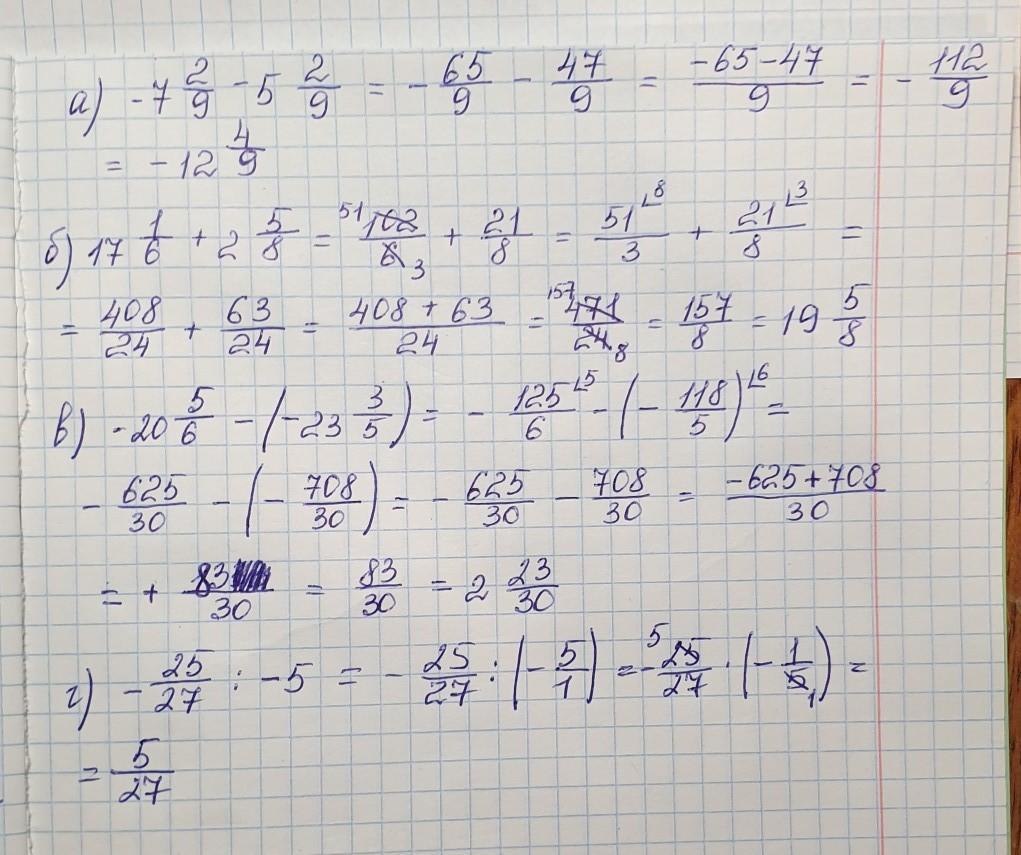 а) -7 2/9 - 5 2/9 = - 65/9 - 47/9 = (-65-47)/9 = - 112/9
= -12 4/9
б) 17 1/6 + 2 5/8 = 51 102/6 3 + 21/8 = 51/3 ⌞8 + 21/8 ⌞3 =
= 408/24 + 63/24 = (408 + 63)/24 = 157 471/24 8 = 157/8 = 19 5/8
в) -20 5/6 - (-23 3/5) = - 125/6 ⌞5 - (- 118/5) ⌞6 =
- 625/30 - (- 708/30) = - 625/30 - 708/30 = (-625+708)/30
= + 83/30 = 83/30 = 2 23/30
г) - 25/27 : -5 = - 25/27 : (- 5/1) = - 5 25/27 · (- 1/5 1) =
= 5/27